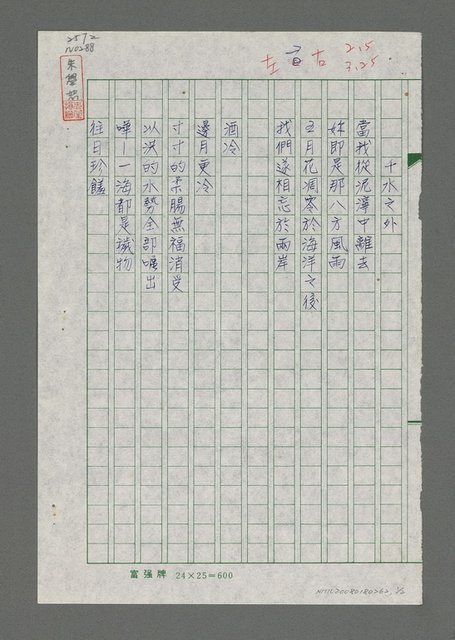 2572
N0288
左 ② 右
2.15
3.25
朱學恕
十水之外
當我從泥濘中離去
妳即是那八方風雨
五月花凋零於海洋之後
我們遂相忘於兩岸
酒冷
邊月更冷
寸寸的柔腸無福消受
以洪的水勢全部嘔出
嘩——海都是穢物
往日珍饈
富強牌 24×25=600
NMTL20080180262, 1/2